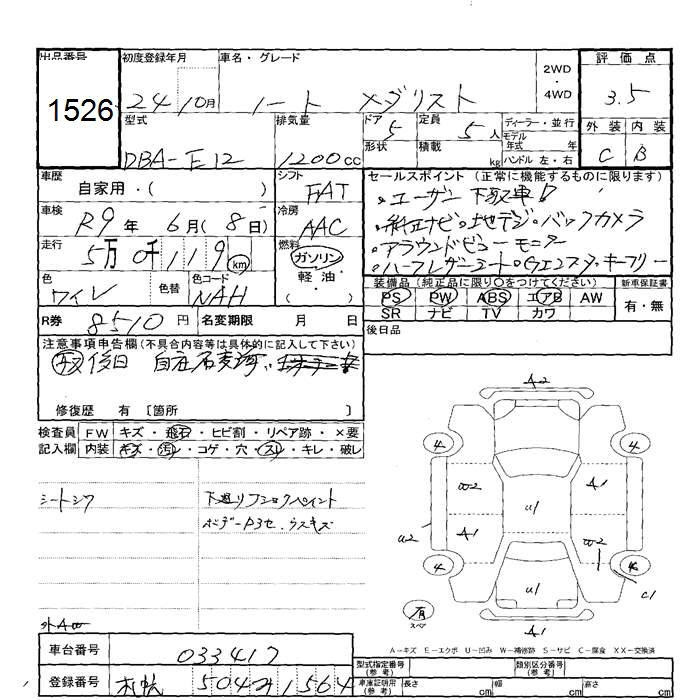 出品番号
1526
初度登録年月
24 10月
車名・グレード
ノート メダリスト
2WD・4WD
評価点
3.5
型式
DBA-E12
排気量
1200cc
ドア
5
形状
定員
5人
積載
kg
ディーラー・並行
モデル年式 年式
ハンドル 左・右
外装 内装
C B
車歴
自家用・( )
シフト
FAT
車検
R9年 6月(8日)
冷房
AAC
走行
5万0千119km
燃料
ガソリン
軽油・
色
ワイン
色替
色コード
NAH
R券 8510円
名変期限 月 日
セールスポイント(正常に機能するものに限ります)
・ユーザー下取車!
・純正ナビ・地デジ・バックカメラ
・アラウンドビューモニター
・ハーフレザーシート・ウエンスタ・キーフリー
装備品(純正品に限り○をつけてください)
新車保証書
PS PW ABS エアB AW
有・無
SR ナビ TV カワ
後日品
注意事項申告欄(不具合内容等は具体的に記入して下さい)
後日
修復歴 有〔箇所 〕
検査員記入欄
FW キズ・飛石・ヒビ割・リペア跡・×要
内装 キズ・汚レ・コゲ・穴・スレ・キレ・破レ
シートシワ
下廻り
ボデー
ウスキズ
A2
4 4
W2 A1
U1
A1 W2
U2
4 4
C1
U1
有
スペア
A1
A-キズ E-エクボ U-凹み W-補修跡 S-サビ C-腐食 XX-交換済
車台番号 033417
登録番号 札幌 504 1564
型式指定番号(参考)
類別区分番号(参考)
車庫証明用(参考) 長さ cm 幅 cm 高さ cm